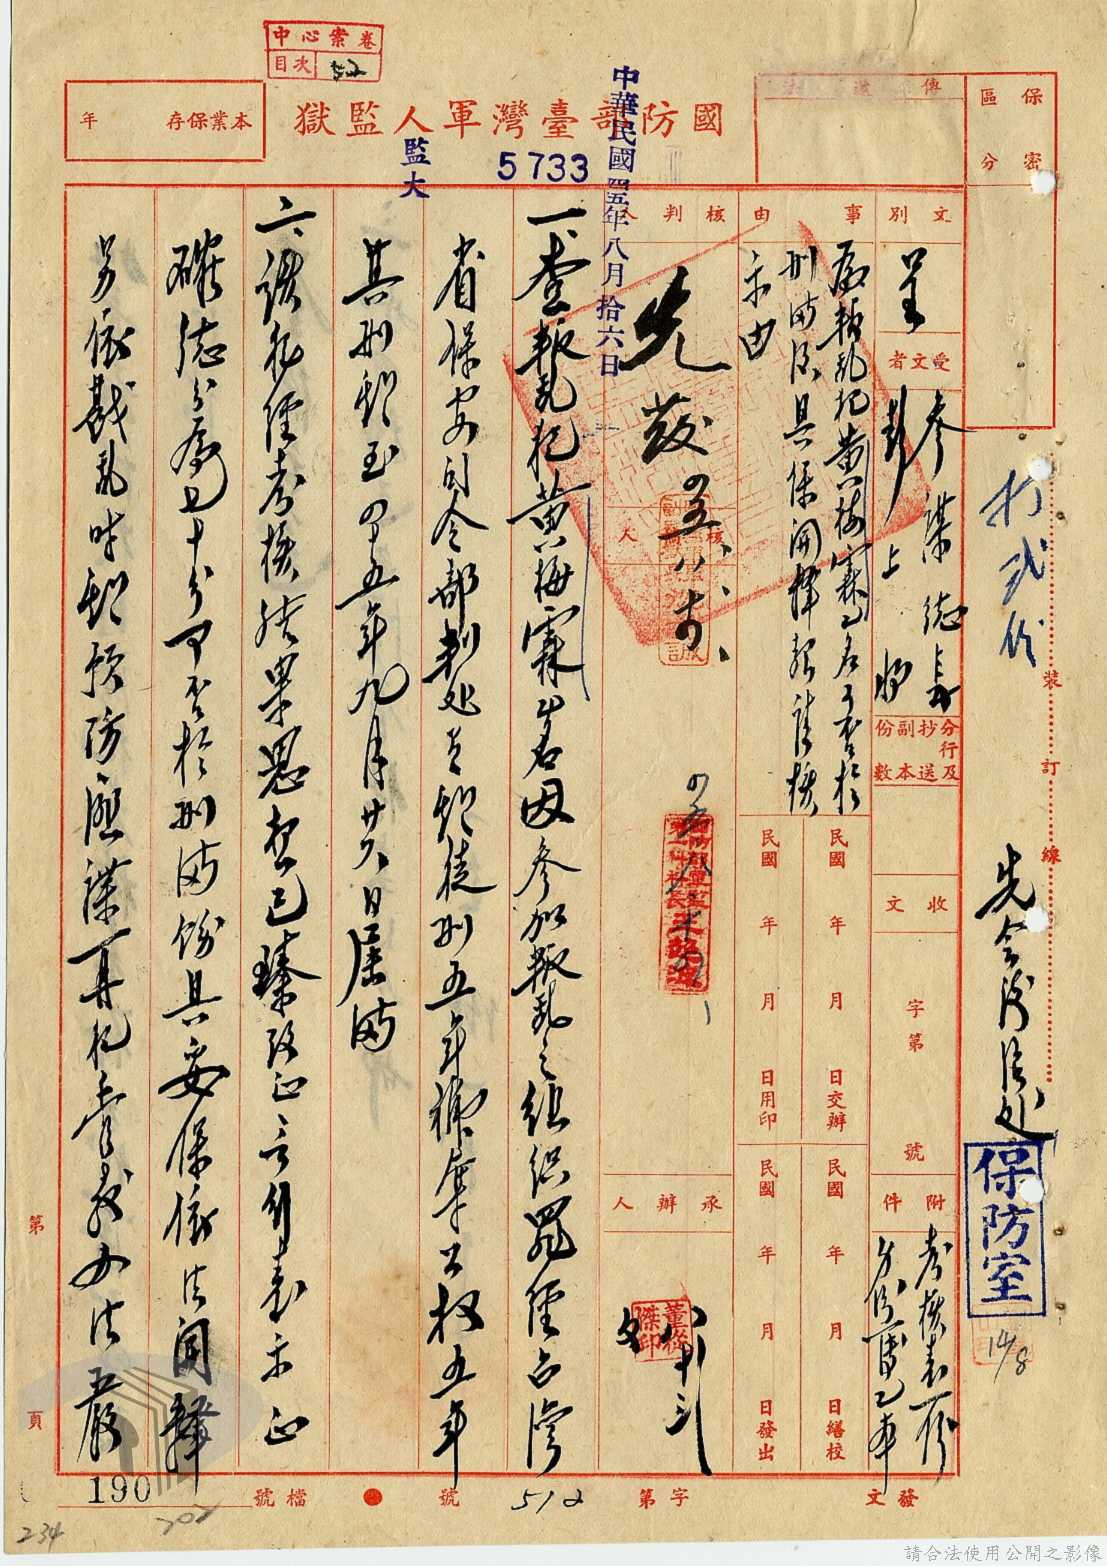 中心案卷
目次 52
國防部臺灣軍人監獄
本業保存 年
傳遞
保密
區分
中華民國四五年八月拾六日
監大
5733
文別
呈
受文者
參謀總長
彭 上將
事由
為叛亂犯黃梅霖一名可否於
刑滿後具保開釋報請核
示由
分行及抄送副本份數
收文
字第
號
附件
考核表一份
民國 年 月 日交辦
民國 年 月 日繕校
民國 年 月 日用印
民國 年 月 日發出
核判
先發
核 人
承辦人
董
傑印
一、查叛亂犯黃梅霖一名因參加叛亂之組織罪經台灣
省保安司令部判處有期徒刑五年褫奪公權五年
其刑期至四十五年九月廿六日屆滿
二、該犯經考核結果思想已臻改正言行表示正
確總分為七十分可否於刑滿飭具妥保依法開釋
另依戡亂時期預防匪諜再犯管教辦法嚴
打貳份
裝
訂
線
先會
保防室
14/8
第
頁
190
檔號
號
512
字第
發文
234
202
請合法使用公開之影像